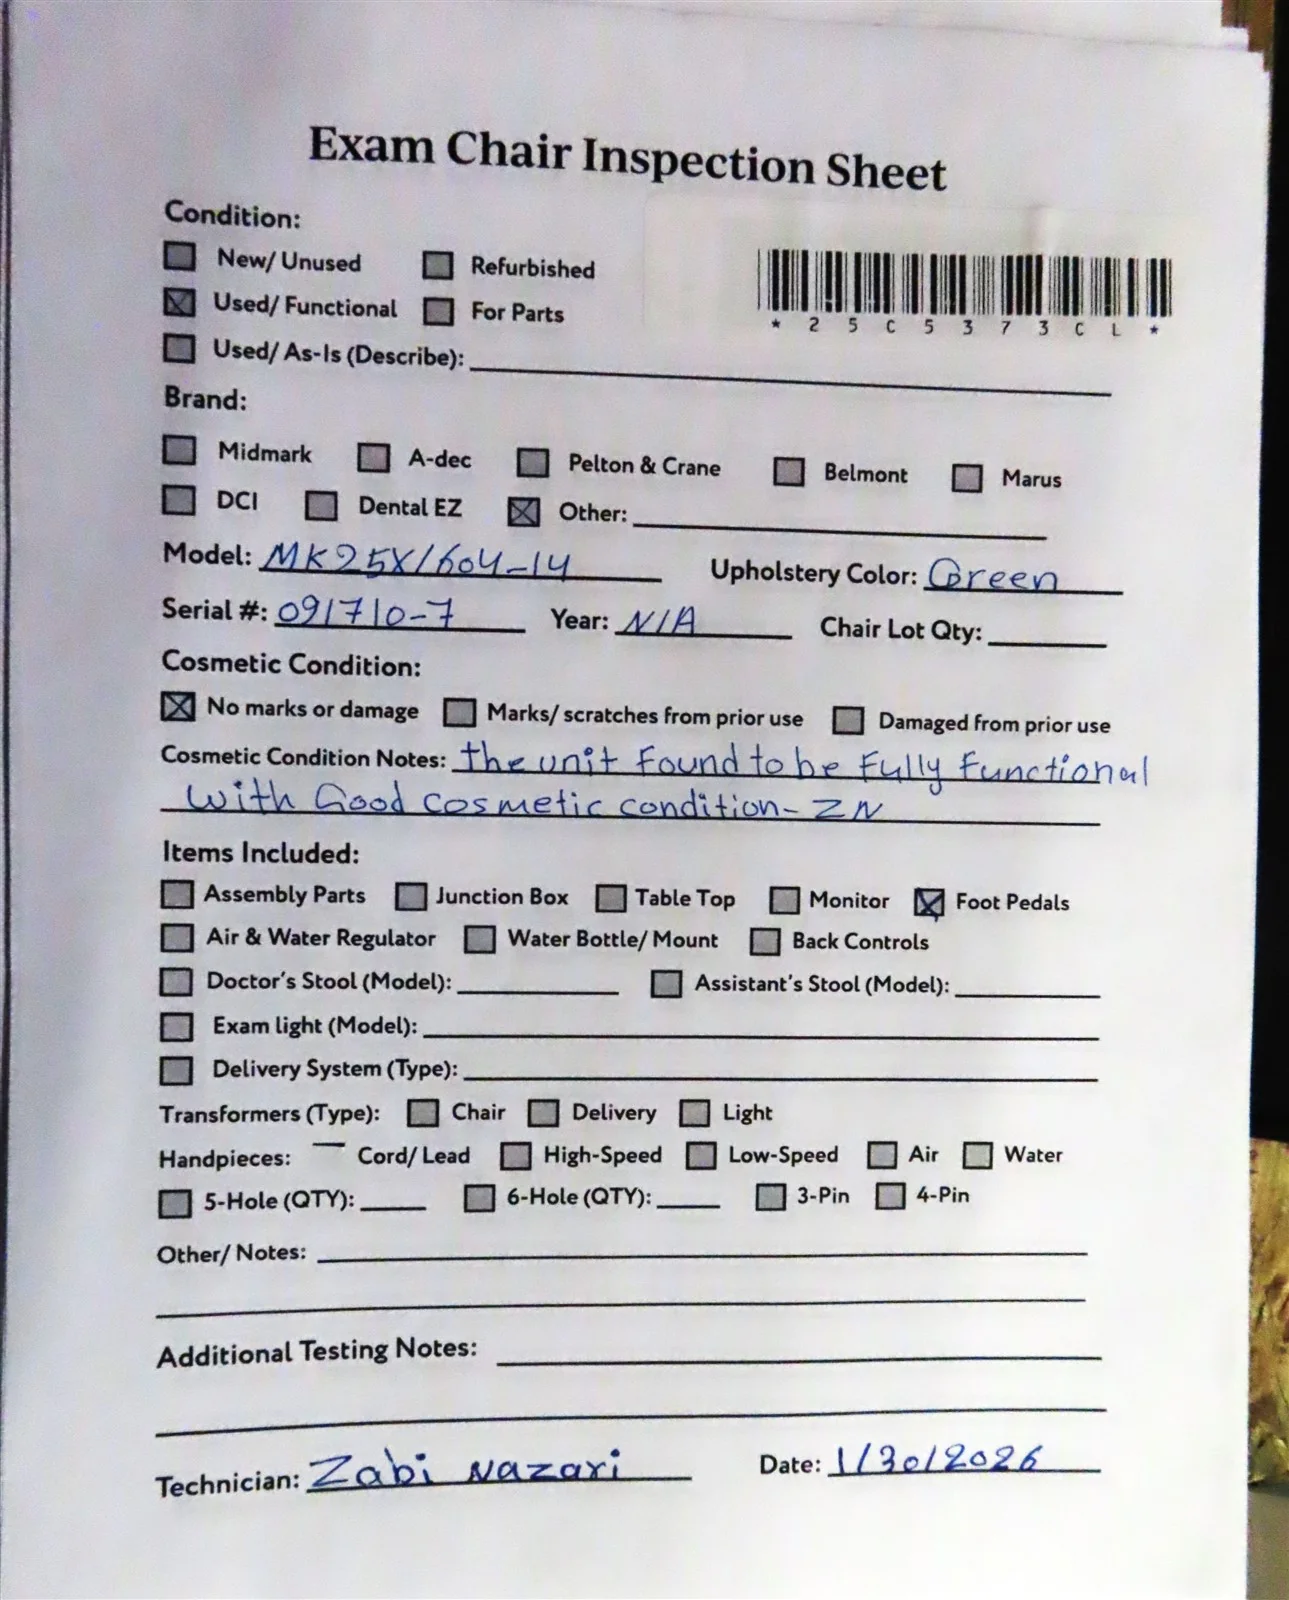 Exam Chair Inspection Sheet
Condition:
New/ Unused Refurbished
Used/ Functional For Parts
* 2 5 C 5 3 7 3 C L *
Used/ As-Is (Describe):
Brand:
Midmark A-dec Pelton & Crane Belmont Marus
DCI Dental EZ Other:
Model: MK25X/604-14 Upholstery Color: Green
Serial #: 091710-7 Year: N/A Chair Lot Qty:
Cosmetic Condition:
No marks or damage Marks/ scratches from prior use Damaged from prior use
Cosmetic Condition Notes: the unit Found to be Fully Functional
with Good cosmetic condition- ZN
Items Included:
Assembly Parts Junction Box Table Top Monitor Foot Pedals
Air & Water Regulator Water Bottle/ Mount Back Controls
Doctor's Stool (Model): Assistant's Stool (Model):
Exam light (Model):
Delivery System (Type):
Transformers (Type): Chair Delivery Light
Handpieces: Cord/ Lead High-Speed Low-Speed Air Water
5-Hole (QTY): 6-Hole (QTY): 3-Pin 4-Pin
Other/ Notes:
Additional Testing Notes:
Technician: Zabi Nazari Date: 1/30/2026